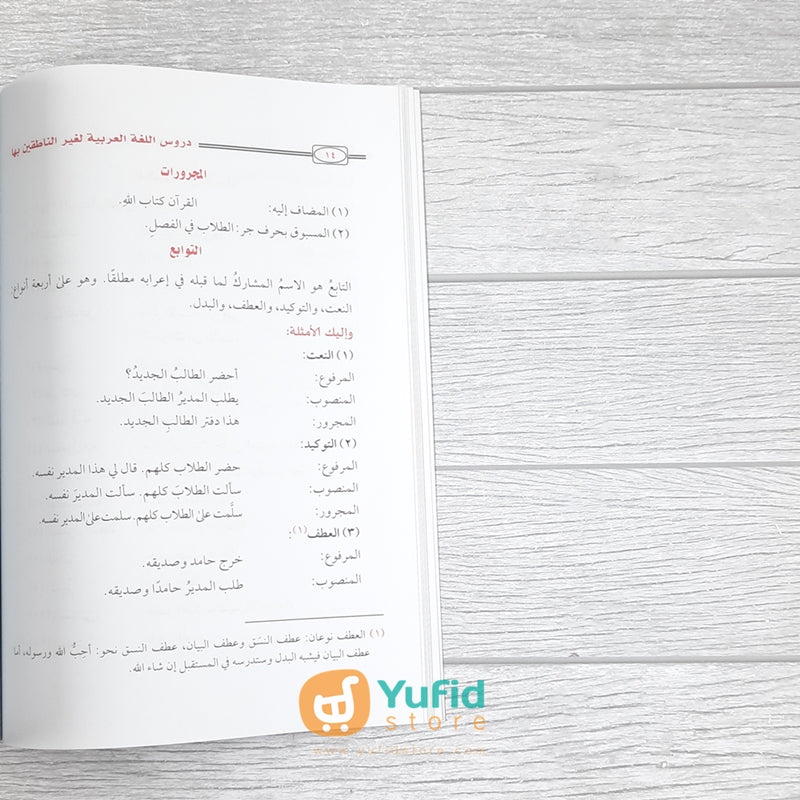 دروس اللغة العربية لغير الناطقين بها
١٤
المجرورات
(١) المضاف إليه: القرآن كتاب اللهِ.
(٢) المسبوق بحرف جر: الطلاب في الفصلِ.
التوابع
التابعُ هو الاسمُ المشاركُ لما قبله في إعرابه مطلقًا. وهو على أربعة أنواع:
النعت، والتوكيد، والعطف، والبدل.
وإليك الأمثلة:
(١) النعت:
المرفوع: أحضر الطالبُ الجديدُ؟
المنصوب: يطلب المديرُ الطالبَ الجديد.
المجرور: هذا دفتر الطالبِ الجديد.
(٢) التوكيد:
المرفوع: حضر الطلاب كلهم. قال لي هذا المدير نفسه.
المنصوب: سألت الطلابَ كلهم. سألت المديرَ نفسه.
المجرور: سلَّمت على الطلاب كلهم. سلمت على المدير نفسه.
(٣) العطف(١):
المرفوع: خرج حامد وصديقه.
المنصوب: طلب المديرُ حامدًا وصديقه.
(١) العطف نوعان: عطف النسَق وعطف البيان، عطف النسق نحو: أحِبُّ الله ورسوله، أما
عطف البيان فيشبه البدل وستدرسه في المستقبل إن شاء الله.
Yufid
store
www.yufidstore.com